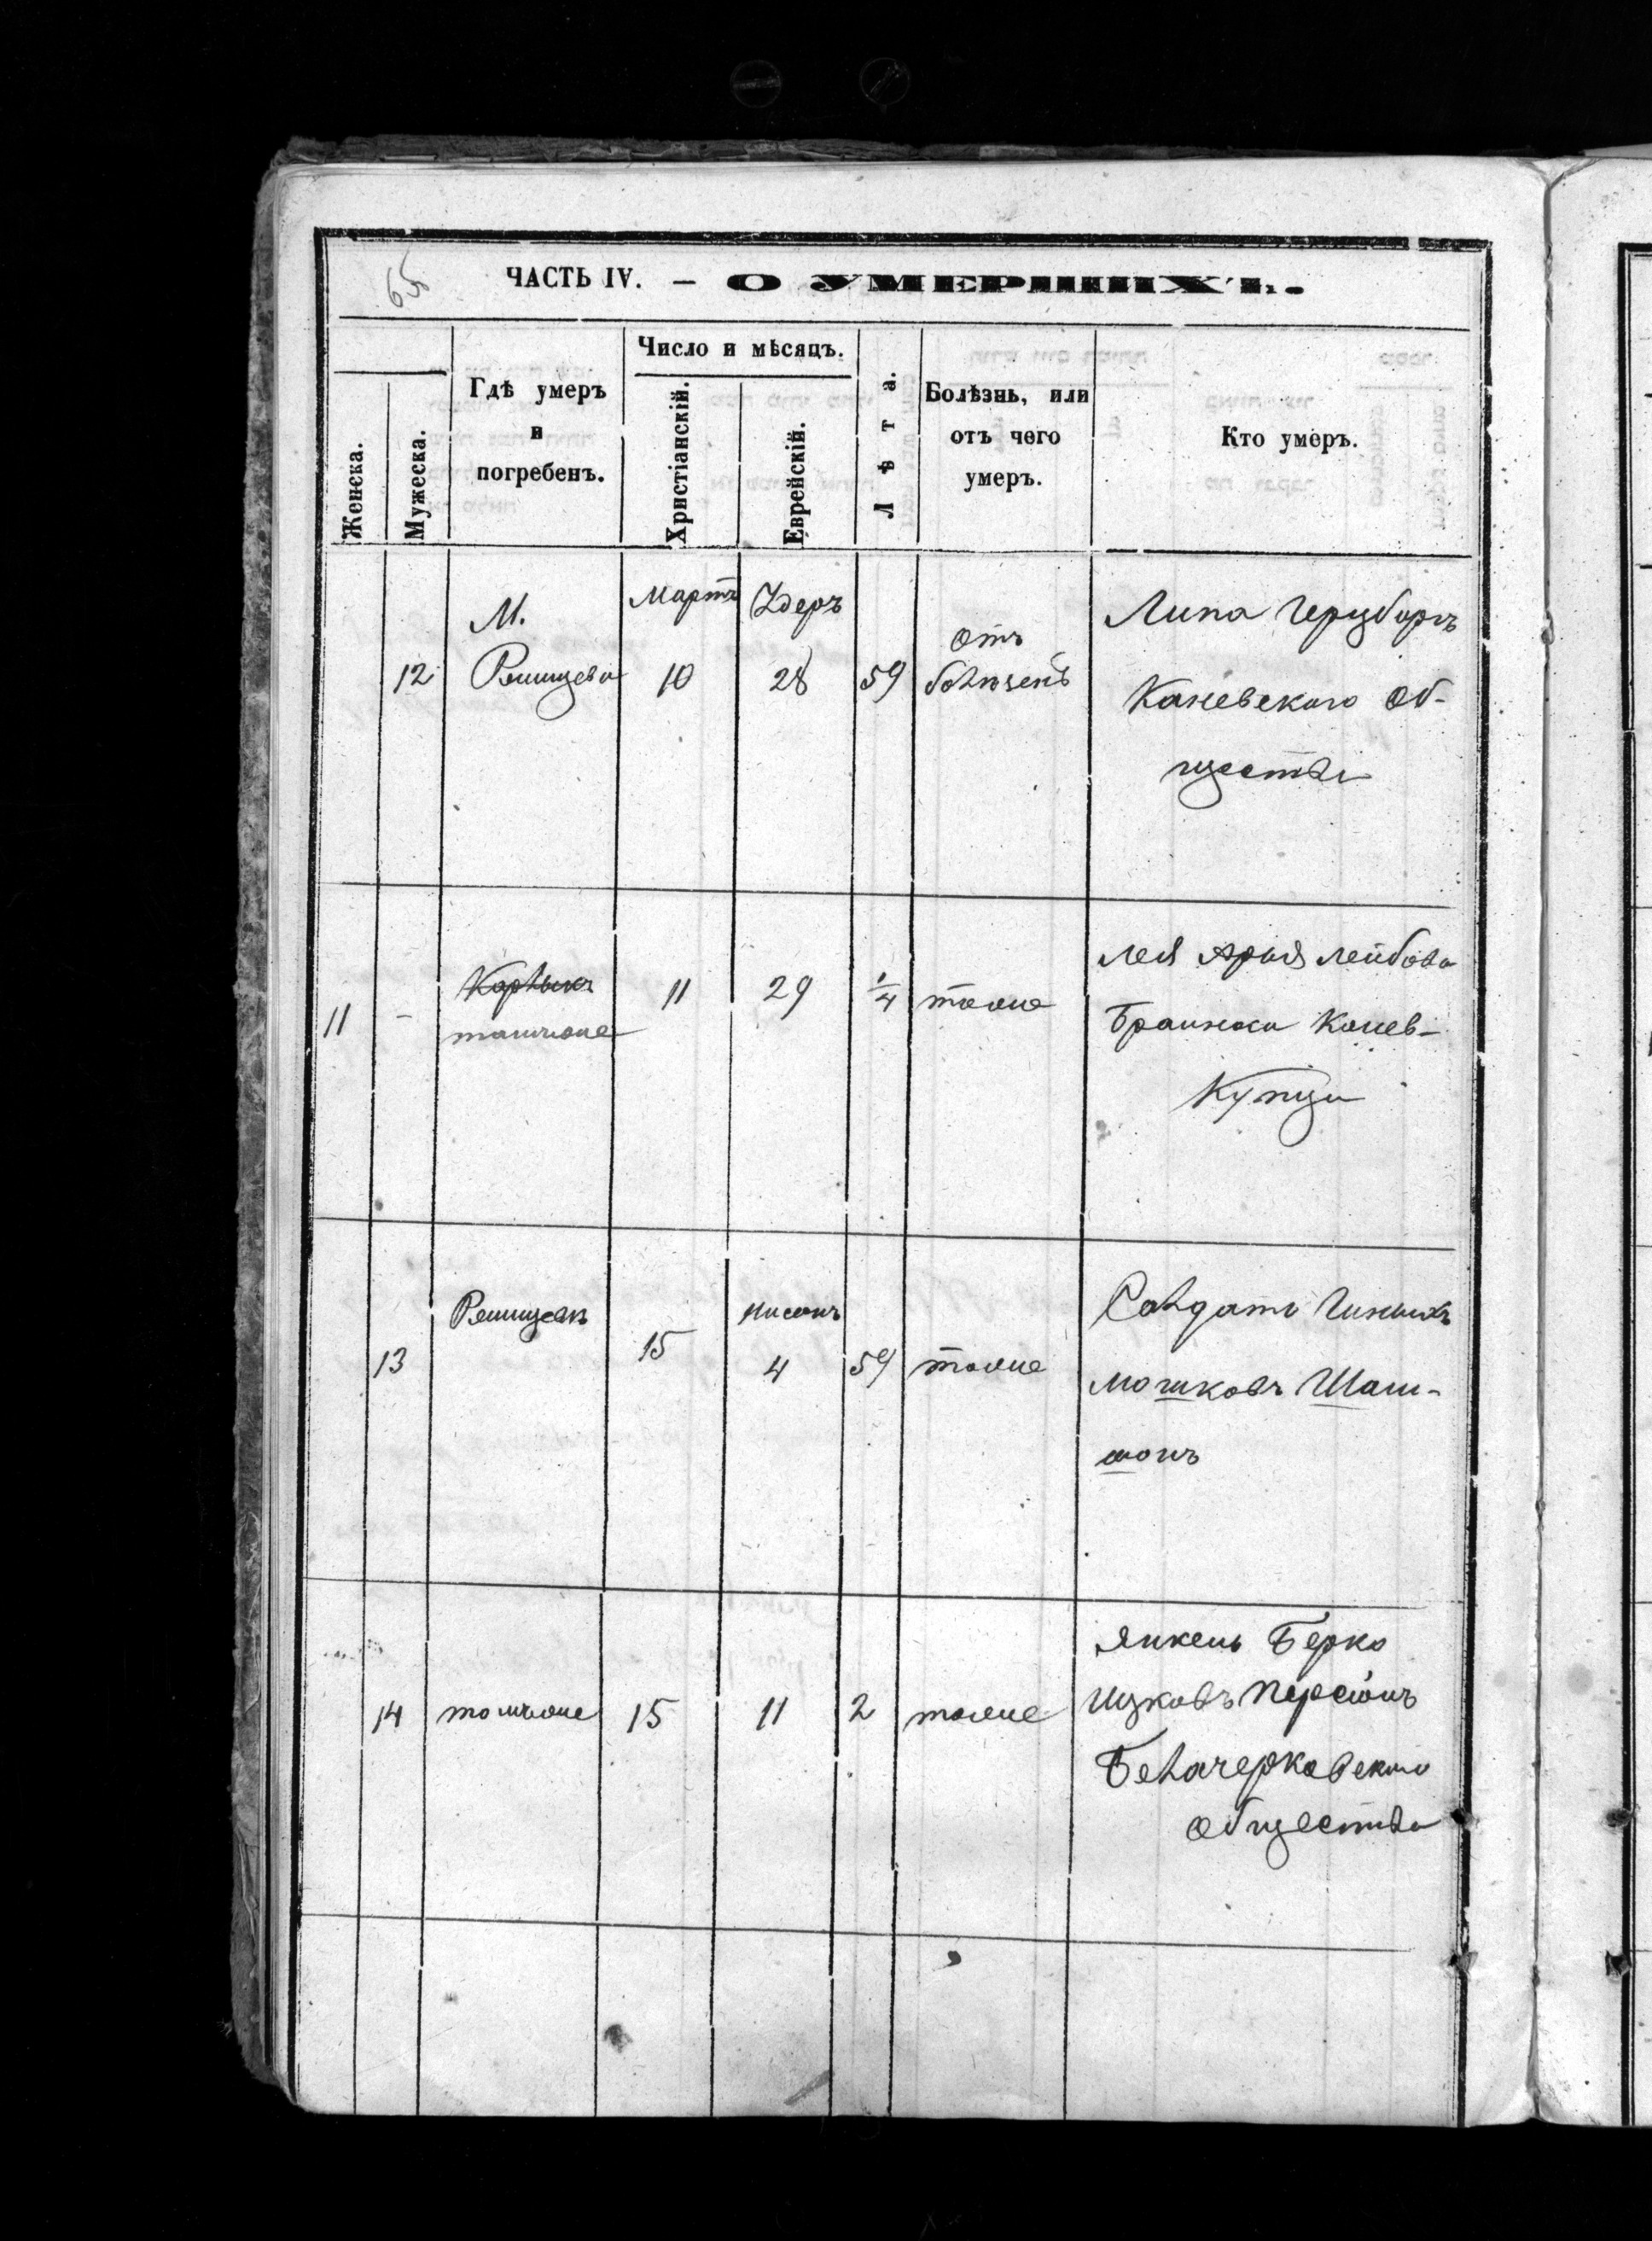 65
ЧАСТЬ IV. — О УМЕРШИХЪ.
Женска.
Мужеска.
Гдѣ умеръ
и
погребенъ.
Число и мѣсяцъ.
Христіанскій.
Еврейскій.
Лѣта.
Болѣзнь, или
отъ чего
умеръ.
Кто умеръ.
12
М.
Ржищева
Мартъ
10
Адеръ
28
59
отъ
болезень
Липа Герцбергъ
Каневского об-
щества
11
-
тамжоне
11
29
1/4
тоже
Лея Арья Лейбова
Канев-
Купца
13
Ржищевъ
15
нисонъ
4
59
тоже
Солдатъ
Мошковъ Шам-
шонъ
14
тамжоне
15
11
2
тоже
Янкель Берко
Ицковъ Персіонъ
Белачерковского
общества